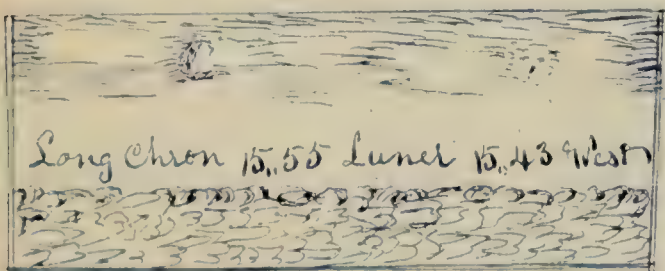 Long Chron 15,,55 Luner 15,,43 West